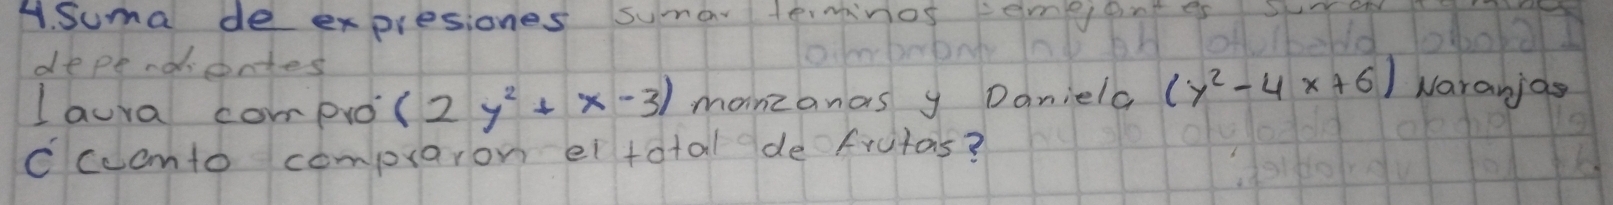 4. Suma de expresiones sumar terminos semejantes sumar
dependientes
Laura compró (2y² + x - 3) manzanas y Daniela (y² - 4x + 6) Naranjas
¿Cuanto compraron el total de frutas?